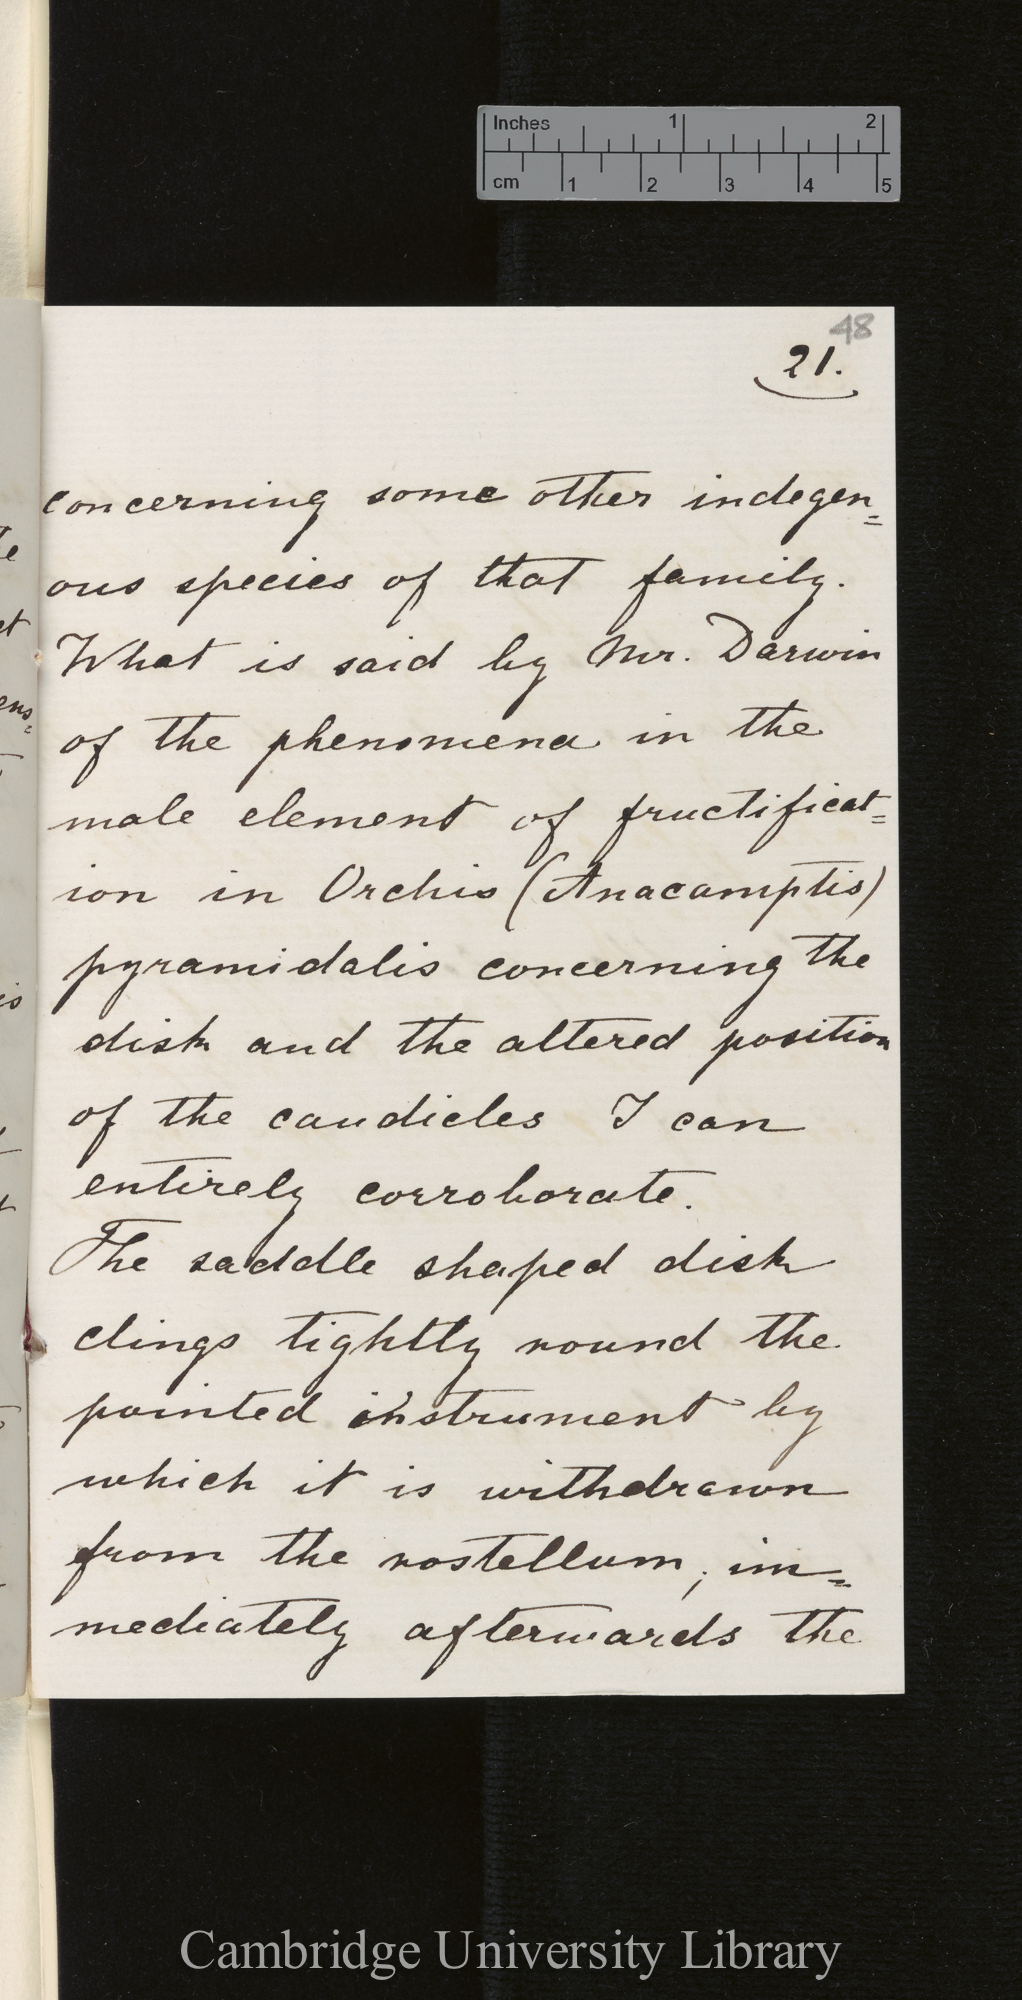 Inches 1 2
cm 1 2 3 4 5
48
21.
concerning some other indegen=
ous species of that family.
What is said by Mr. Darwin
of the phenomena in the
male element of fructificat=
ion in Orchis (Anacamptis)
pyramidalis concerning the
disk and the altered position
of the caudicles I can
entirely corroborate.
The saddle shaped disk
clings tightly round the
pointed instrument by
which it is withdrawn
from the rostellum; im=
mediately afterwards the
Cambridge University Library